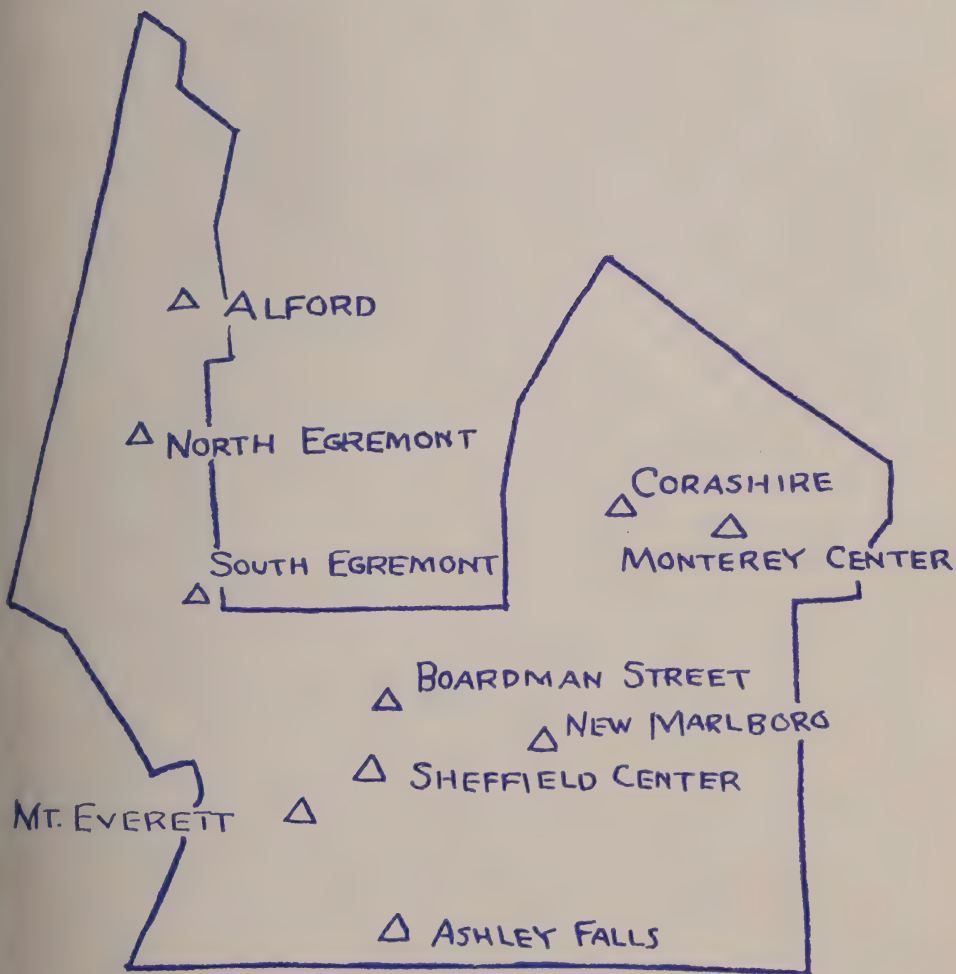 ALFORD
NORTH EGREMONT
CORASHIRE
SOUTH EGREMONT
MONTEREY CENTER
BOARDMAN STREET
NEW MARLBORO
SHEFFIELD CENTER
MT. EVERETT
ASHLEY FALLS